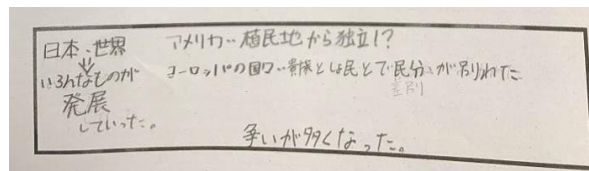 日本、世界
↓
いろんなものが
発展
していった。
アメリカ…植民地から独立!?
ヨーロッパの国々…貴族としょ民とで民分が別れた
差別
争いが多くなった。